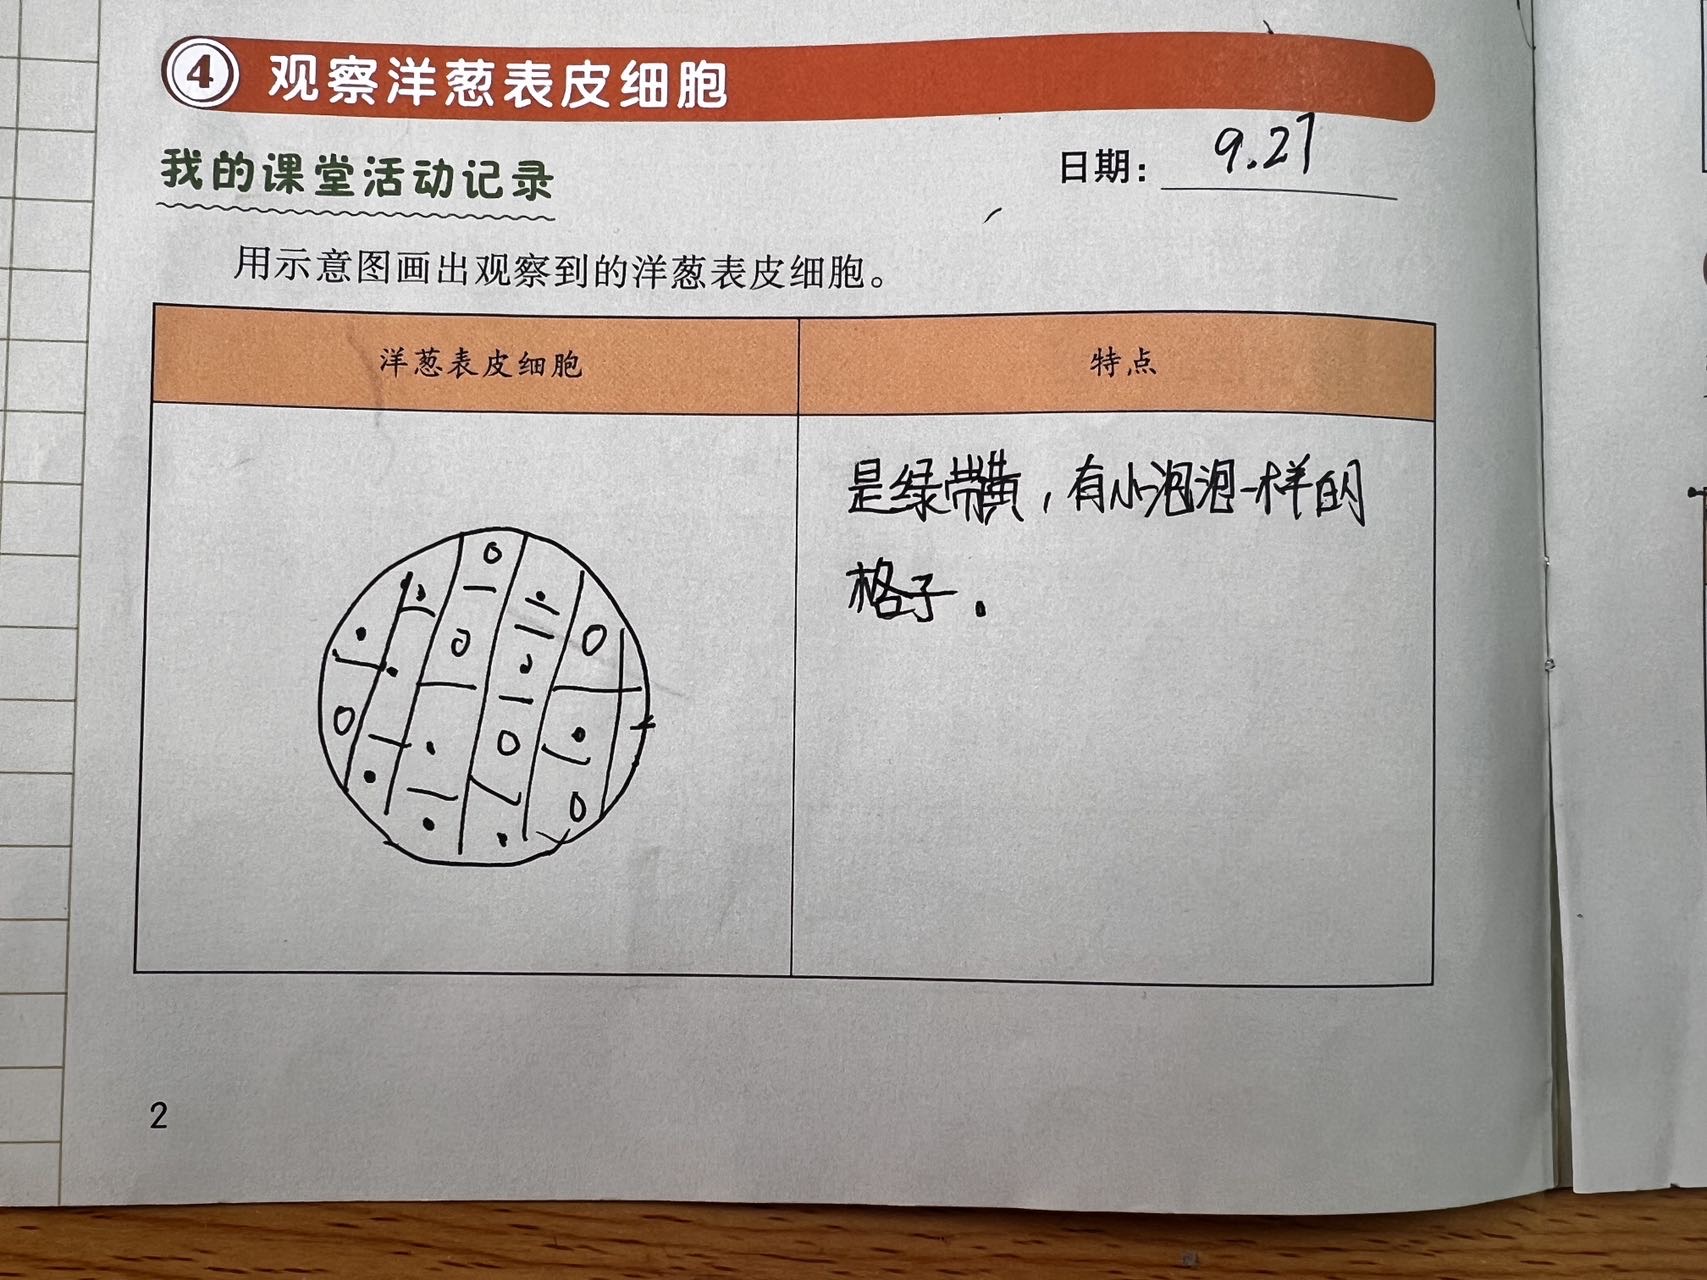 4 观察洋葱表皮细胞
我的课堂活动记录
日期: 9.27
用示意图画出观察到的洋葱表皮细胞。
洋葱表皮细胞 特点
是绿带黄,有小泡泡一样的
格子.
2